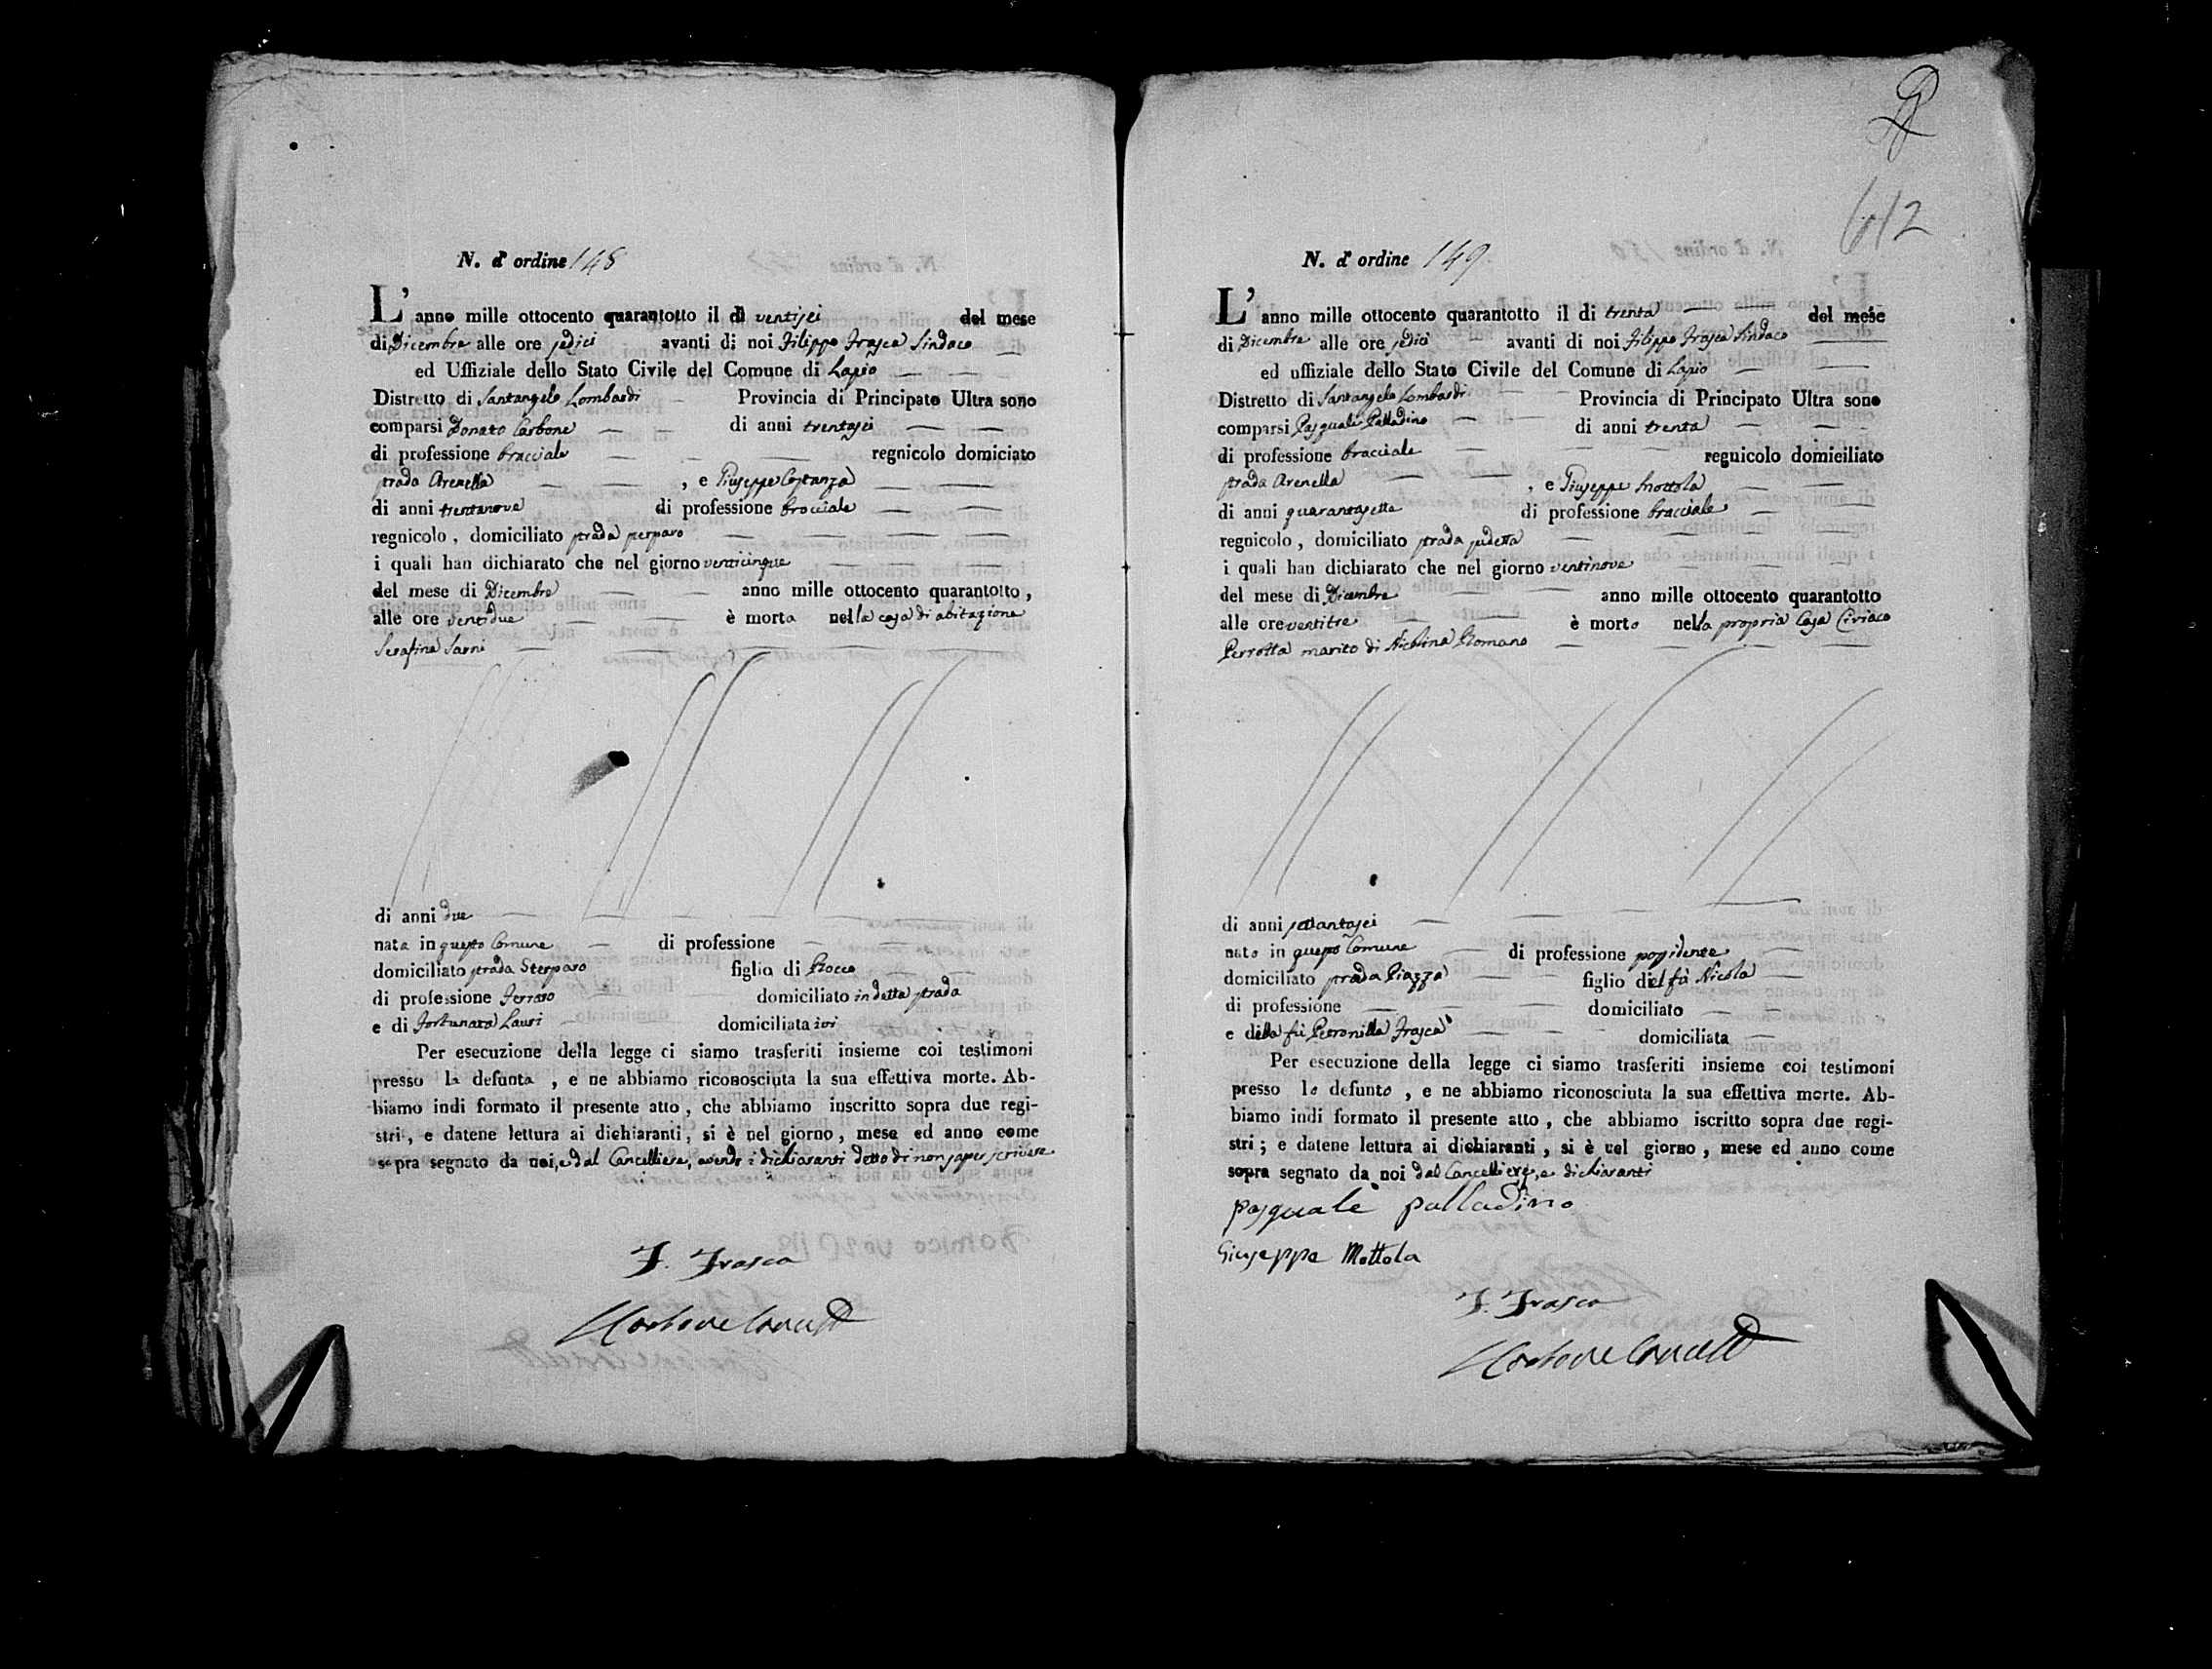 N. d' ordine 148
L' anno mille ottocento quarantotto il dì ventisei del mese
di Dicembre alle ore sedici avanti di noi Filippo Frasca Sindaco
ed Uffiziale dello Stato Civile del Comune di Lapio
Distretto di Santangelo Lombardi Provincia di Principato Ultra sono
comparsi Donato Carbone di anni trentasei
di professione bracciale regnicolo domiciato
strada Arenella , e Giuseppe Costanza
di anni trentanove di professione bracciale
regnicolo , domiciliato strada sterparo
i quali han dichiarato che nel giorno venticinque
del mese di Dicembre anno mille ottocento quarantotto ,
alle ore ventidue è morta nella casa di abitazione
Serafina Sarni
di anni due
nata in questo Comune di professione
domiciliato strada Sterparo figlia di Rocco
di professione Ferraro domiciliato in detta strada
e di Fortunata Lauri domiciliata ivi
Per esecuzione della legge ci siamo trasferiti insieme coi testimoni
presso la defunta , e ne abbiamo riconosciuta la sua effettiva morte. Ab-
biamo indi formato il presente atto , che abbiamo inscritto sopra due regi-
stri , e datene lettura ai dichiaranti , si è nel giorno , mese ed anno come
sopra segnato da noi, e dal Cancelliere, avendo i dichiaranti detto di non saper scrivere
F. Frasca
Carbone Cancell
2
612
N. d' ordine 149
L' anno mille ottocento quarantotto il di trenta del mese
di Dicembre alle ore sedici avanti di noi Filippo Frasca Sindaco
ed uffiziale dello Stato Civile del Comune di Lapio
Distretto di Santangelo Lombardi Provincia di Principato Ultra sono
comparsi Pasquale Palladino di anni trenta
di professione bracciale regnicolo domiciliato
strada Arenella , e Giuseppe Mottola
di anni quarantasette di professione bracciale
regnicolo , domiciliato strada
i quali han dichiarato che nel giorno ventinove
del mese di Dicembre anno mille ottocento quarantotto
alle ore ventitre è morto nella propria Casa Ciriaco
Perrotta marito di Nicolina Romano
di anni
nato in questo Comune di professione possidente
domiciliato strada Piazza figlio del fù Nicola
di professione domiciliato
e della fù Petronilla Frasca domiciliata
Per esecuzione della legge ci siamo trasferiti insieme coi testimoni
presso lo defunto , e ne abbiamo riconosciuta la sua effettiva morte. Ab-
biamo indi formato il presente atto , che abbiamo iscritto sopra due regi-
stri ; e datene lettura ai dichiaranti , si è nel giorno , mese ed anno come
sopra segnato da noi dal Cancelliere, e dichiaranti
Pasquale Palladino
Giuseppe Mottola
F. Frasca
Carbone Cancell